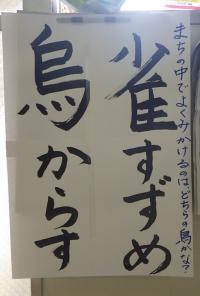 まちの中でよくみかけるのは、どちらの鳥かな？
雀すずめ
烏からす